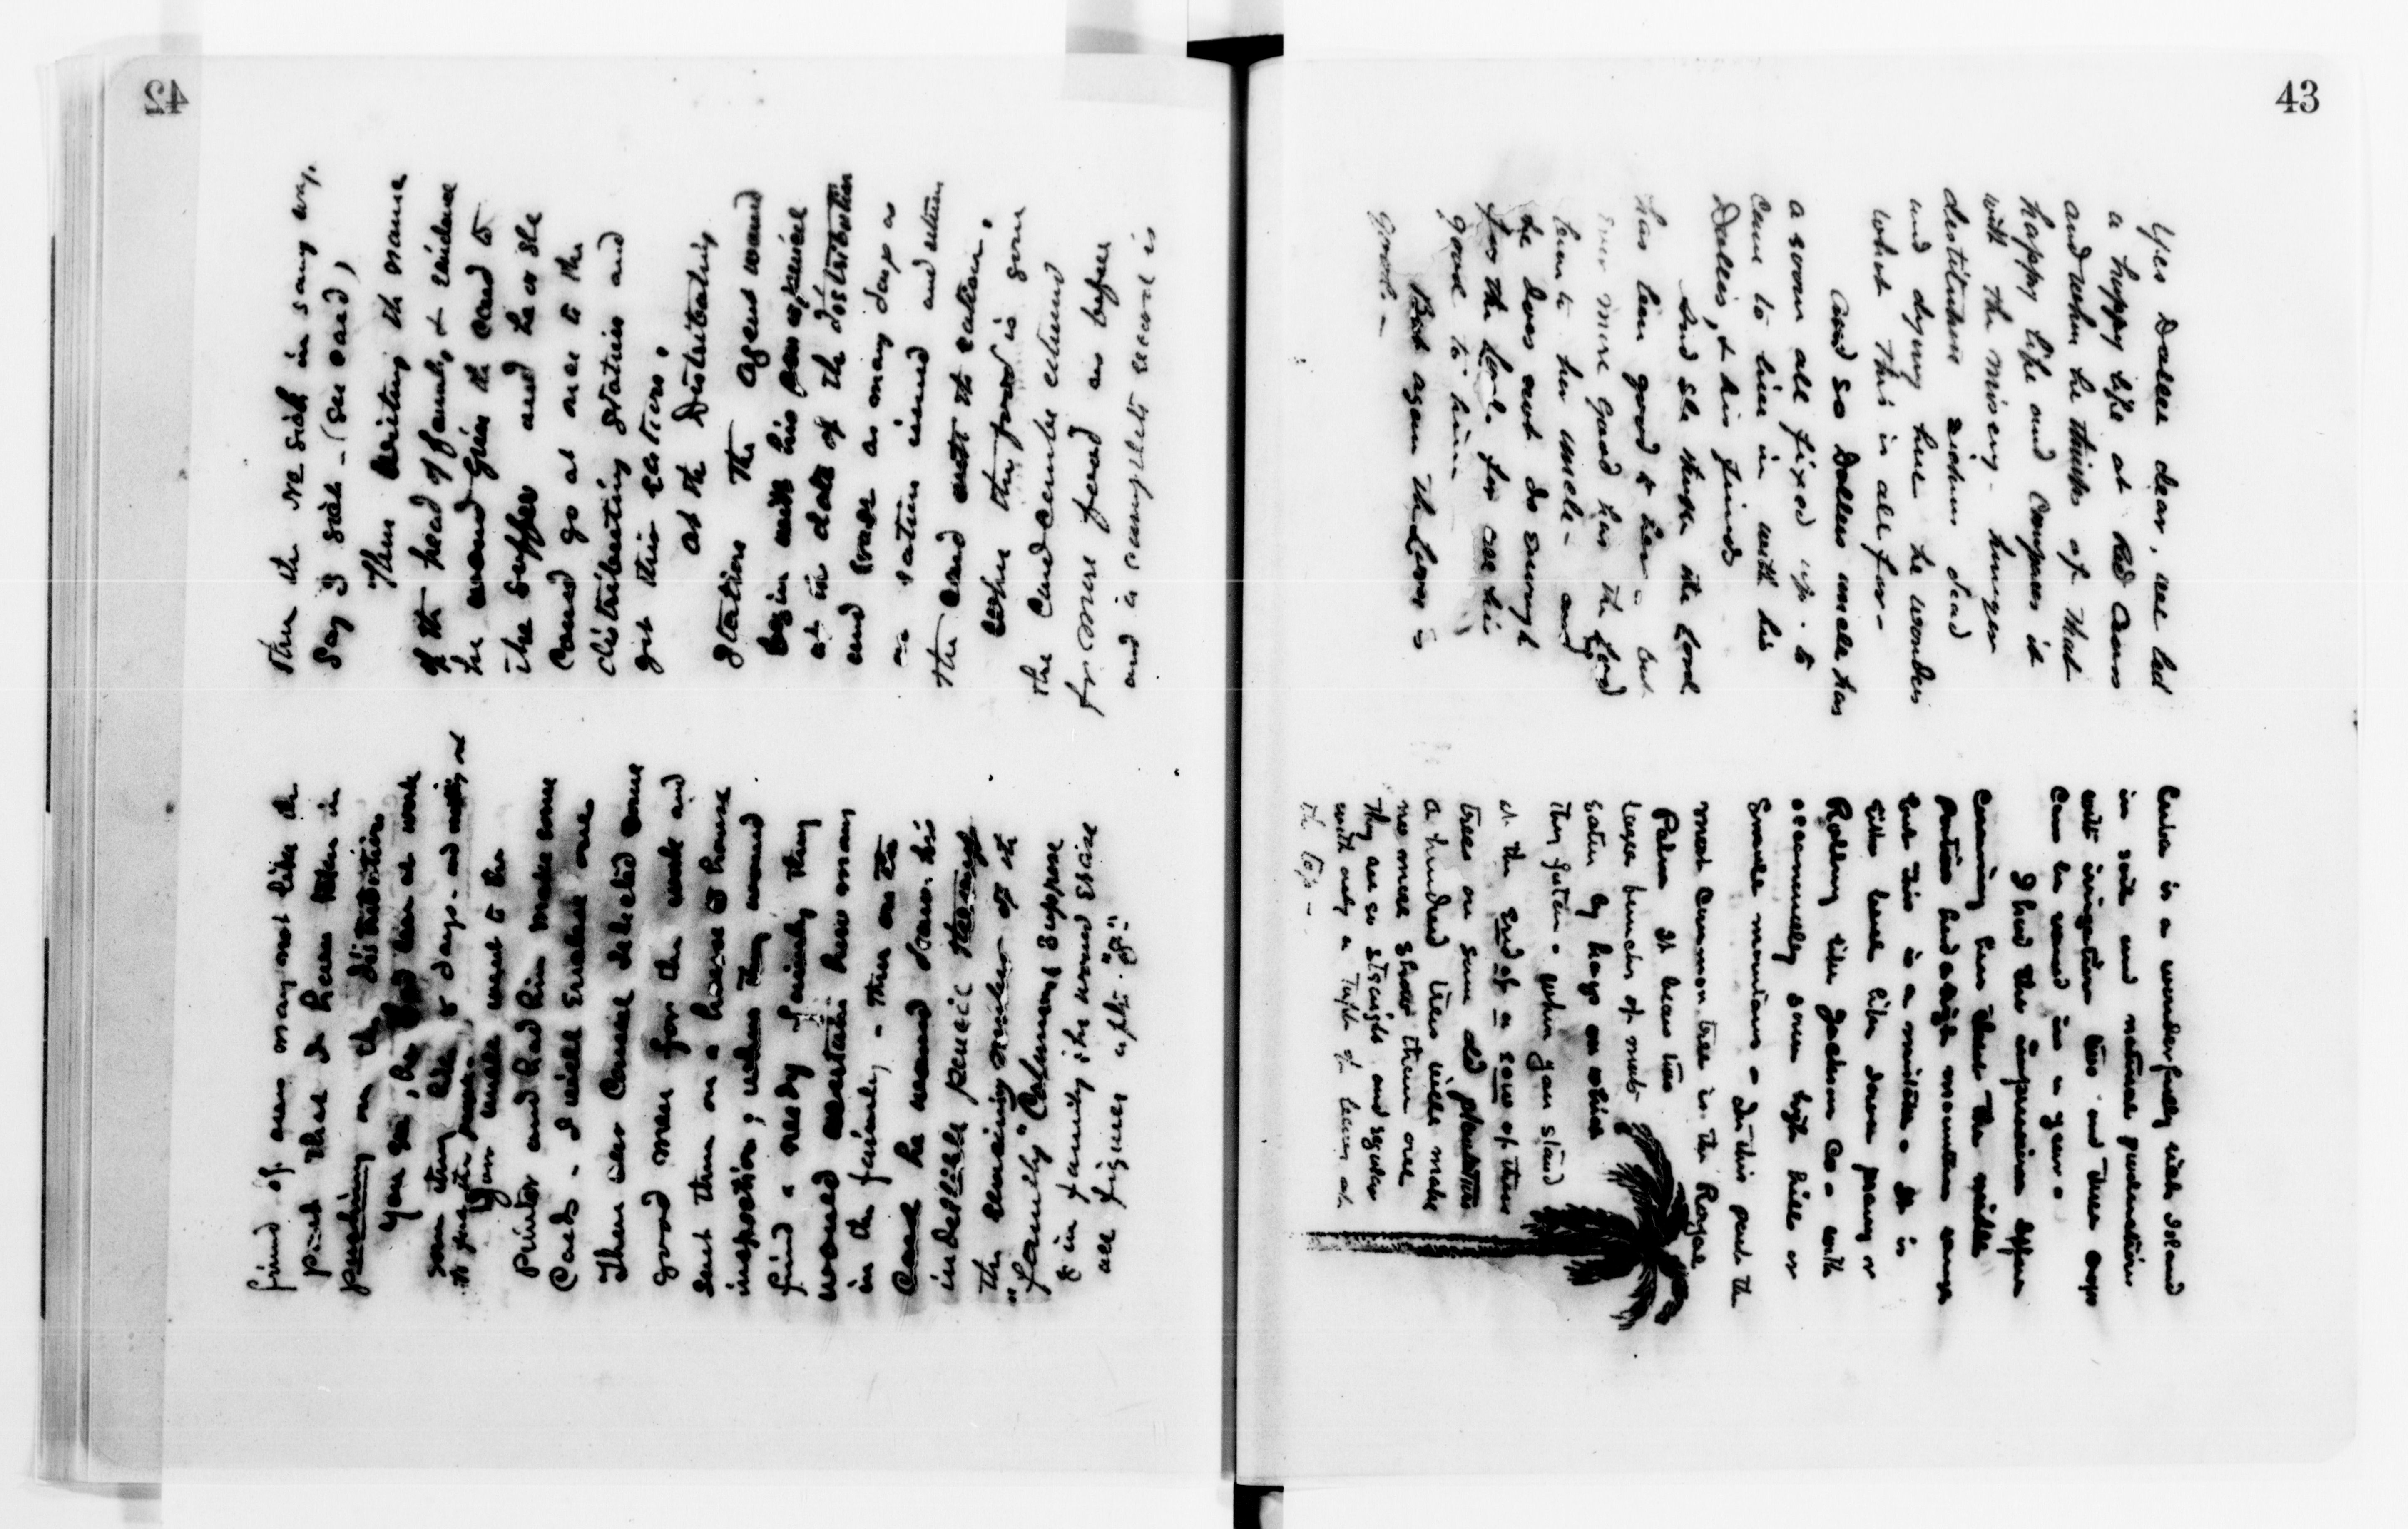 42
then the no sick in same way.
Say 3 sick - (see card)
Then writing the name
of the head of family, & residence
he would give the card to
the suffer and he or she
could go at once to the
distributing station and
get their rations.
At the Distributing
Stations the agent would
begin with his
at the date of the distribution
and erase as many days as
rations issued and return
the card with the rations.
when the food is gone
the card can be returned
for more food as before
and a complete record is
friend of ours may not like the
point that I have taken in
pushing on the distribution
You see, he had him at work
some thing like 8 days - and
Gen will went to the
printer and had him make some
Cards - I will enclose one
Then our Consul selected some
good men for the work and
sent them on a house to house
inspection; when they would
find a needy family they
would ascertain how many
in the family - then on the
Card he would draw his
indellible pencil through
the remaining number of the
"family" Column; Suppose
8 in family, he would erase
all figures after "8".
43
Yes Dallee dear, we led
a happy life at Red Cross
and when he thinks of that
happy life and compares it
with the misery - hunger
destitution sickness dead
and dying here he wonders
what this is all for -
And so Dallees uncle has
a room all fixed up to
come to live in with his
Dallee, & his friends
And she thinks the Lord
has been good to her - but
ever more good has the Lord
been to her uncle - and
he does not do enough
for the Lord for all his
good to him
But again the Lord is
good. -
Cuba is a wonderfully rich Island
in soil and natural productions
with irrigation two and three crops
can be raised in a year.
I had the impression before
coming here that the middle
portion had a high mountain range
but this is a mistake. It is
little level like prairy or
Rolling like Jackson Co. with
occasionally some high hills or
Small mountains. In this part the
most common tree is the Royal
Palm It bears two
large bunches of nuts
eaten by hogs on which
they fatten. when you stand
at the end of a row of these
trees on some old plantation
a hundred trees will make
no more show than one
They are so straight and regular
with only a tuft of leaves at
the top -